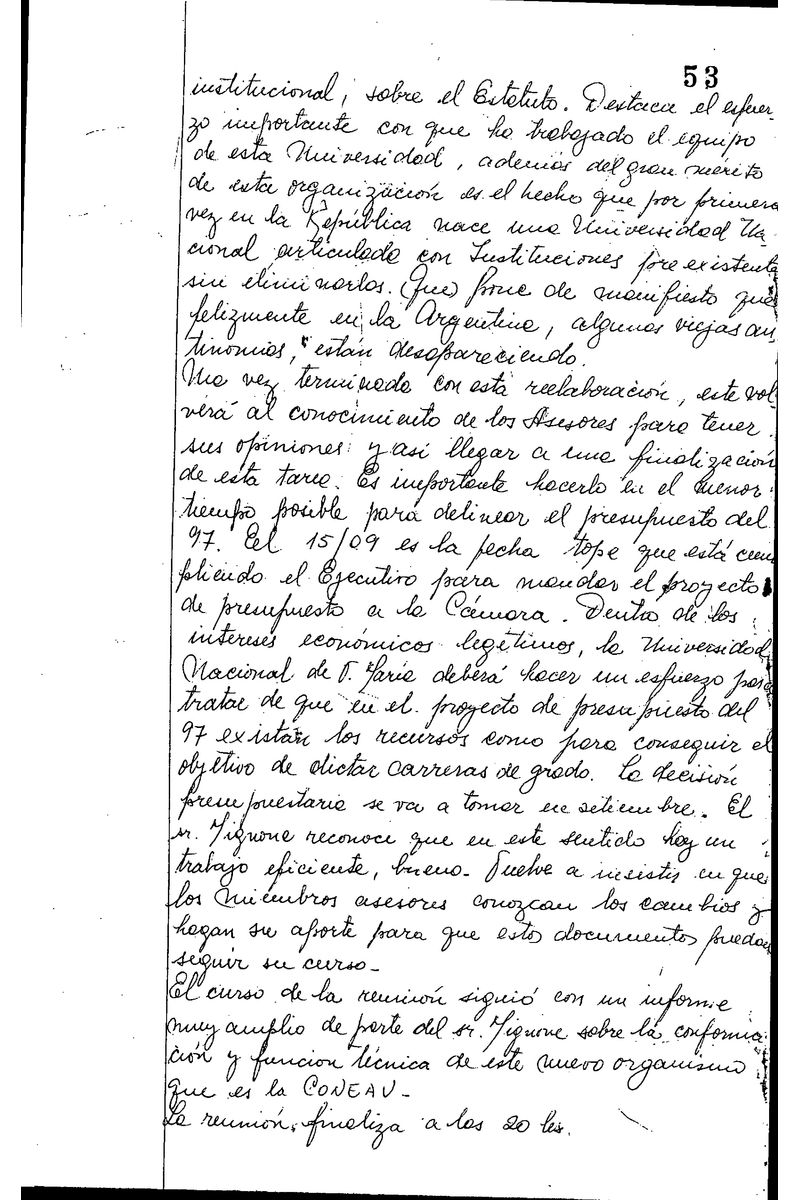 53
institucional, sobre el Estatuto. Destaca el esfuer-
zo importante con que ha trabajado el equipo
de esta Universidad, además del gran mérito
de esta organización es el hecho que por primera
vez en la República nace una Universidad Na-
cional articulada con Instituciones preexistente
sin eliminarlas. (Que) Pone de manifiesto que
felizmente en la Argentina, algunas viejas an
tinomias, están desapareciendo.
Una vez terminada con esta reelaboración, este vol-
verá al conocimiento de los Asesores para tener
sus opiniones y así llegar a una finalización
de esta tarea. Es importante hacerlo en el menor
tiempo posible para delinear el presupuesto del
97. El 15/09 es la fecha tope que está cum
pliendo el Ejecutivo para mandar el proyecto
de presupuesto a la Cámara. Dentro de los
intereses económicos legítimos, la Universidad
Nacional de V. María deberá hacer un esfuerzo para
tratar de que en el proyecto de presupuesto del
97 existan los recursos como para conseguir el
objetivo de dictar carreras de grado. La decisión
presupuestaria se va a tomar en setiembre. El
sr. Mignone reconoce que en este sentido hay un
trabajo eficiente, bueno. Vuelve a insistir en que
los miembros asesores conozcan los cambios y
hagan su aporte para que estos documentos puedan
seguir su curso.
El curso de la reunión siguió con un informe
muy amplio de parte del sr. Mignone sobre la conforma
ción y función técnica de este nuevo organismo
que es la CONEAU-
La reunión finaliza a las 20 hs.